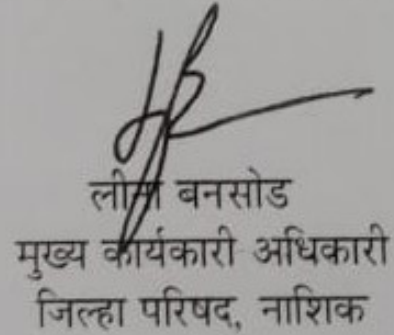 लीना बनसोड
मुख्य कार्यकारी अधिकारी
जिल्हा परिषद, नाशिक